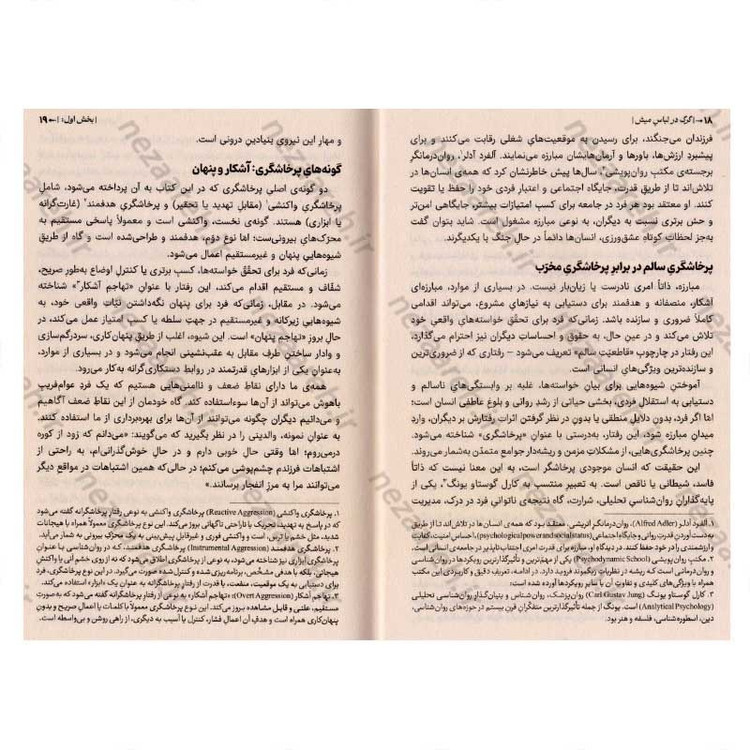 ۱۸ | گرگ در لباس میش |
فرزندان می‌جنگند، برای رسیدن به موقعیت‌های شغلی رقابت می‌کنند و برای
پیشبرد ارزش‌ها، باورها و آرمان‌هایشان مبارزه می‌نمایند. آلفرد آدلر۱، روان‌درمانگر
برجسته‌ی مکتب روان‌پویشی۲، سال‌ها پیش خاطرنشان کرد که همه‌ی انسان‌ها در
تلاش‌اند تا از طریق قدرت، جایگاه اجتماعی و اعتبار فردی خود را حفظ یا تقویت
کنند. او معتقد بود هر فرد در جامعه برای کسب امتیازات بیشتر، جایگاهی امن‌تر
و حس برتری نسبت به دیگران، به نوعی مبارزه مشغول است. شاید بتوان گفت
به‌جز لحظاتِ کوتاهِ عشق‌ورزی، انسان‌ها دائماً در حال جنگ با یکدیگرند.
پرخاشگریِ سالم در برابرِ پرخاشگریِ مخرّب
مبارزه، ذاتاً امری نادرست یا زیان‌بار نیست. در بسیاری از موارد، مبارزه‌ای
آشکار، منصفانه و هدفمند برای دستیابی به نیازهای مشروع، می‌تواند اقدامی
کاملاً ضروری و سازنده باشد. زمانی‌که فرد برای تحقّق خواسته‌های واقعی خود
تلاش می‌کند و در عین حال، به حقوق و احساسات دیگران نیز احترام می‌گذارد،
این رفتار در چارچوبِ «قاطعیّتِ سالم» تعریف می‌شود – رفتاری که از ضروری‌ترین
و سازنده‌ترین ویژگی‌های انسانی است.
آموختنِ شیوه‌هایی برای بیان خواسته‌ها، غلبه بر وابستگی‌های ناسالم و
دستیابی به استقلال فردی، بخشی حیاتی از رشدِ روانی و بلوغِ عاطفی انسان است؛
امّا اگر فرد، بدون دلایلِ منطقی یا بدونِ در نظر گرفتن اثراتِ رفتارش بر دیگران، وارد
میدان مبارزه شود، این رفتار، به‌درستی با عنوانِ «پرخاشگری» شناخته می‌شود.
چنین پرخاشگری‌هایی، از مشکلاتِ مزمن و ریشه‌دار جوامع متمدّن به‌شمار می‌روند.
این حقیقت که انسان موجودی پرخاشگر است، به این معنا نیست که ذاتاً
فاسد، شیطانی یا ناقص است. به تعبیرِ منتسب به کارل گوستاو یونگ۳، یکی از
پایه‌گذارانِ روان‌شناسیِ تحلیلی، شرارت، گاه نتیجه‌ی ناتوانی فرد در درک، مدیریت
۱. آلفرد آدلر (Alfred Adler)، روان‌درمانگر اتریشی، معتقد بود که همه‌ی انسان‌ها در تلاش‌اند تا از طریق
به‌دست آوردن قدرت روانی و جایگاه اجتماعی (psychological power and social status)، احساس امنیت، کفایت و
ارزشمندی را در خود حفظ کنند. در دیدگاه او، مبارزه برای قدرت امری اجتناب‌ناپذیر در جامعه‌ی انسانی است.
۲. مکتب روان‌پویشی (Psychodynamic School) یکی از مهم‌ترین و تأثیرگذارترین رویکردها در روان‌شناسی
و روان‌درمانی است که ریشه در نظریاتِ زیگموند فروید دارد. در ادامه، تعریف دقیق و کاربردی این مکتب
همراه با ویژگی‌های کلیدی و تفاوتِ آن با سایر رویکردها آورده شده است:
۳. کارل گوستاو یونگ (Carl Gustav Jung)، روان‌پزشک، روان‌شناس و بنیان‌گذارِ روان‌شناسی تحلیلی
(Analytical Psychology) است. یونگ از جمله تأثیرگذارترین متفکّرانِ قرن بیستم در حوزه‌های روان‌شناسی،
دین، اسطوره‌شناسی، فلسفه و هنر بود.
| بخش اول: | ۱۹
و مهار این نیروی بنیادینِ درونی است.
گونه‌های پرخاشگری: آشکار و پنهان
دو گونه‌ی اصلی پرخاشگری که در این کتاب به آن پرداخته می‌شود، شامل
پرخاشگری واکنشی۱ (مقابلِ تهدید یا تحقیر) و پرخاشگری هدفمند۲ (غارت‌گرانه
یا ابزاری) هستند. گونه‌ی نخست، واکنشی است و معمولاً پاسخی مستقیم به
محرّک‌های بیرونی‌ست؛ امّا نوع دوّم، هدفمند و طراحی‌شده است و گاه از طریقِ
شیوه‌هایی پنهان و غیرمستقیم اعمال می‌شود.
زمانی‌که فرد برای تحقّق خواسته‌ها، کسب برتری یا کنترلِ اوضاع به‌طور صریح،
شفّاف و مستقیم اقدام می‌کند، این رفتار با عنوانِ «تهاجمِ آشکار»۳ شناخته
می‌شود. در مقابل، زمانی‌که فرد برای پنهان نگه‌داشتن نیّات واقعی خود، به
شیوه‌هایی زیرکانه و غیرمستقیم در جهتِ سلطه یا کسب امتیاز عمل می‌کند، در
حالِ بروزِ «تهاجمِ پنهان» است. این شیوه، اغلب از طریق پنهان‌کاری، سردرگم‌سازی
و وادار ساختنِ طرف مقابل به عقب‌نشینی انجام می‌شود و در بسیاری از موارد،
به‌عنوانِ یکی از ابزارهای قدرتمند در روابط دستکاری‌گرانه به‌کار می‌رود.
همه‌ی ما دارای نقاطِ ضعف و ناامنی‌هایی هستیم که یک فرد عوام‌فریبِ
باهوش می‌تواند از آن‌ها سوءاستفاده کند. گاه خودمان از این نقاطِ ضعف آگاهیم
و می‌دانیم دیگران چگونه می‌توانند از آن‌ها برای بهره‌برداری از ما استفاده کنند.
به عنوانِ نمونه، والدینی را در نظر بگیرید که می‌گویند: «می‌دانم که زود از کوره
درمی‌روم؛ امّا وقتی حال خوبی دارم و در حالِ خوش‌گذرانی‌ام، به راحتی از
اشتباهاتِ فرزندم چشم‌پوشی می‌کنم؛ در حالی‌که همین اشتباهات در مواقع دیگر
می‌توانند مرا به مرزِ انفجار برسانند.»
۱. پرخاشگری واکنشی (Reactive Aggression) پرخاشگری واکنشی به نوعی رفتارِ پرخاشگرانه گفته می‌شود
که در پاسخ به تهدید، تحریک یا ناراحتی ناگهانی بروز می‌کند. این نوع پرخاشگری معمولاً همراه با هیجانات
شدید، مثل خشم یا ترس، است و واکنشی فوری و غیرقابل پیش‌بینی به یک محرّکِ بیرونی به شمار می‌آید.
۲. پرخاشگری هدفمند (Instrumental Aggression) پرخاشگری هدفمند، که در روان‌شناسی با عنوانِ
پرخاشگری ابزاری نیز شناخته می‌شود، به نوعی از پرخاشگری اطلاق می‌شود که نه از روی خشم آنی یا واکنشِ
هیجانی، بلکه با هدفی مشخّص، برنامه‌ریزی شده و کنترل‌شده صورت می‌گیرد. در این نوع پرخاشگری، فرد
برای دستیابی به یک موقعیت، منفعت، یا قدرت، از رفتارِ پرخاشگرانه به عنوانِ یک «ابزار» استفاده می‌کند.
۳. تهاجم آشکار (Overt Aggression): «تهاجمِ آشکار» به نوعی از رفتارِ پرخاشگرانه گفته می‌شود که به‌صورتِ
مستقیم، علنی و قابل مشاهده بروز می‌کند. این نوع پرخاشگری معمولاً با کلمات یا اعمالِ صریح و بدون
پنهان‌کاری همراه است و هدفِ آن اعمالِ فشار، کنترل یا آسیب به دیگری، از راهی روشن و بی‌واسطه است.